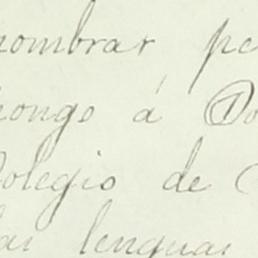 nombrar pe
pongo á Do
Colegio de C
las lenguas